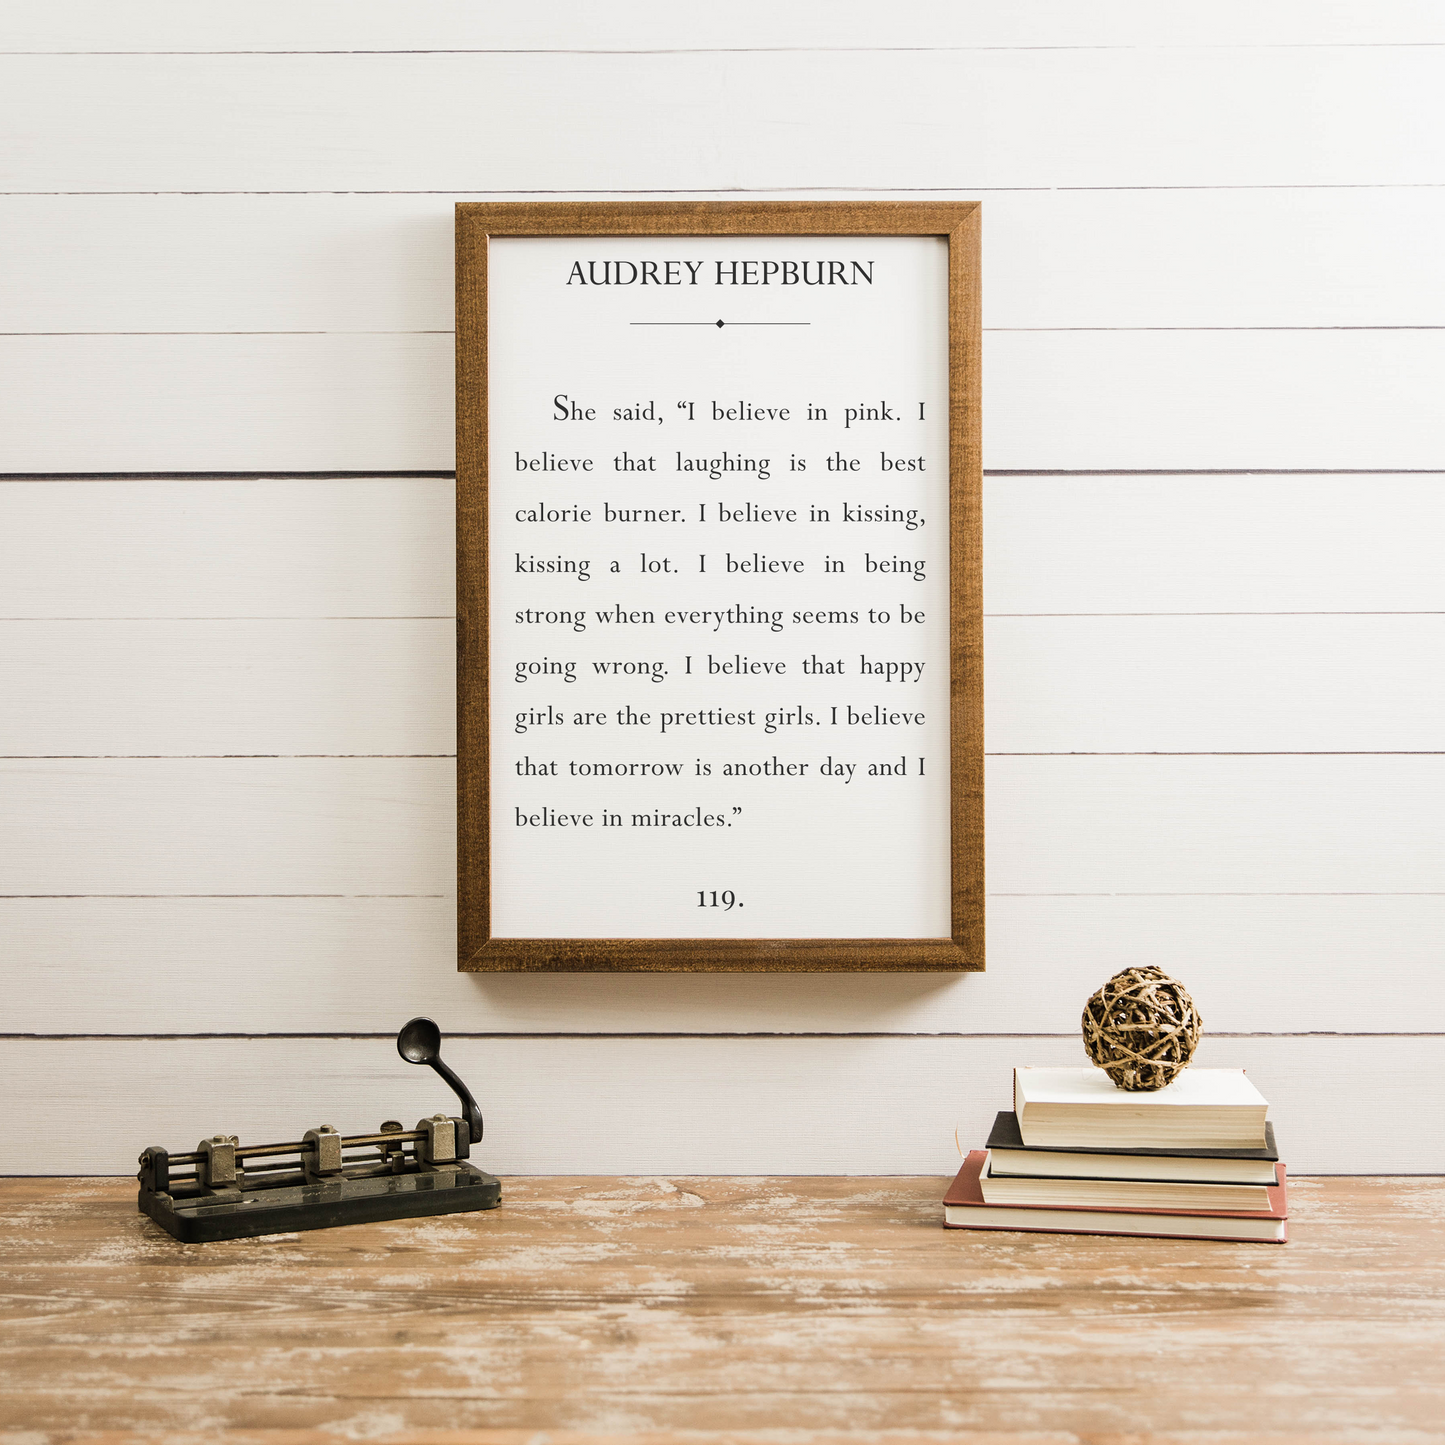 AUDREY HEPBURN
She said, “I believe in pink. I
believe that laughing is the best
calorie burner. I believe in kissing,
kissing a lot. I believe in being
strong when everything seems to be
going wrong. I believe that happy
girls are the prettiest girls. I believe
that tomorrow is another day and I
believe in miracles.”
119.